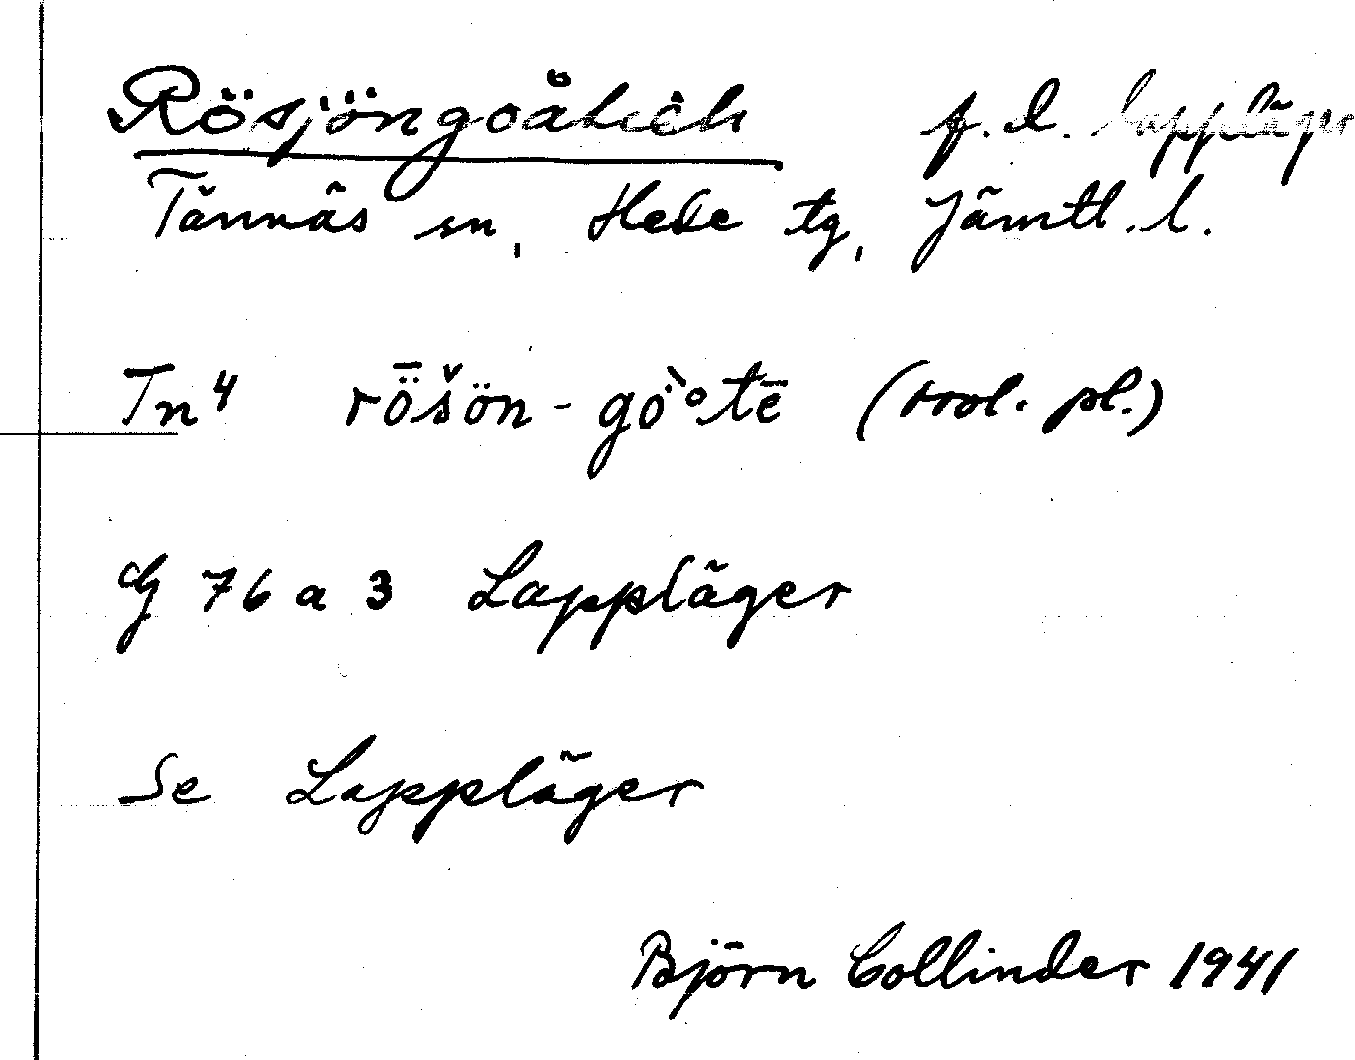 Rösjöngoåhtieh f.d. lappläger
Tännäs sn, Hede tg, Jämtl. l.
Tn 4 rȫšön-gö̀°tē (pl.)
G 76 a 3 Lappläger
Se Lappläger
Björn Collinder 1941